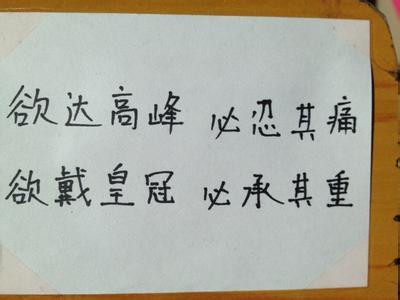 欲达高峰 必忍其痛
欲戴皇冠 必承其重